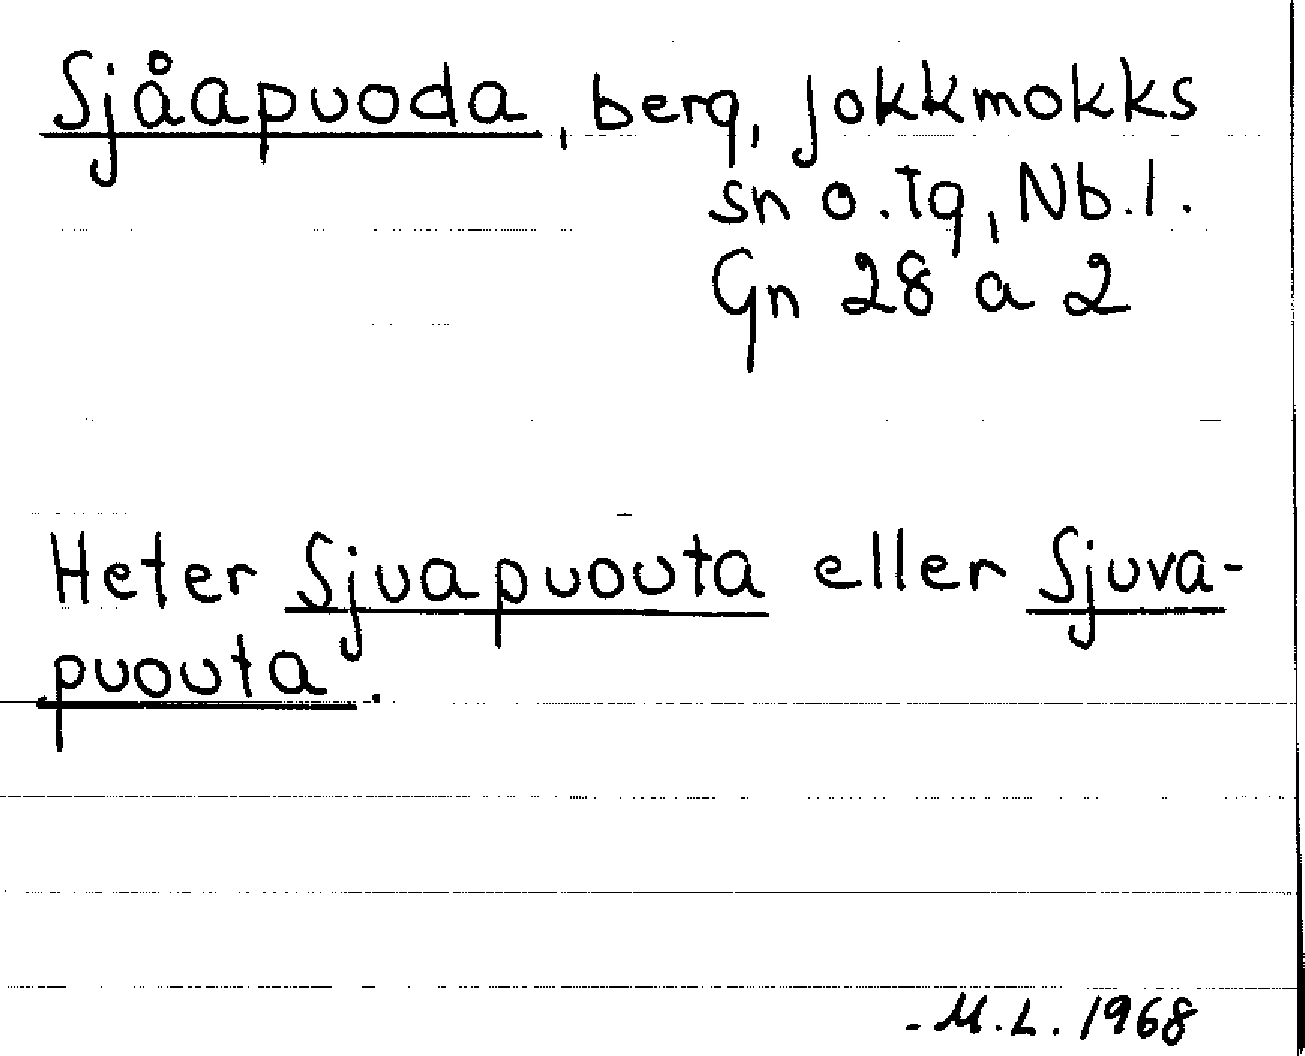 Sjåapuoda, berg, Jokkmokks
sn o. Tg, Nb. l.
Gn 28 a 2
Heter Sjuapuouta eller Sjuva-
puouta.
M.L. 1968